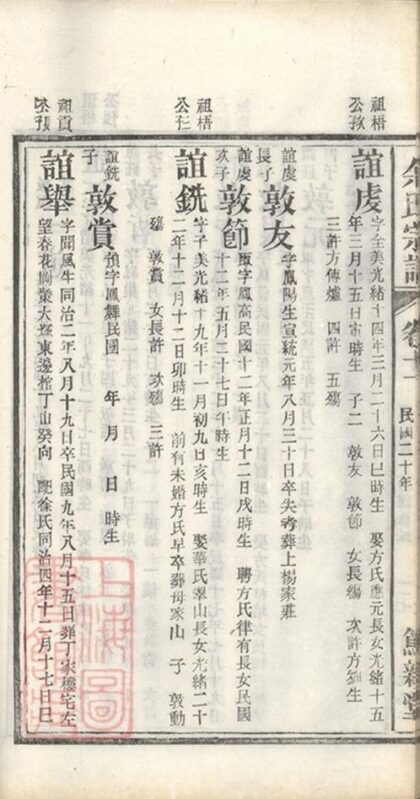 氏宗譜
民國二十年
祖梧
公孜
誼虔
字全美光緒十四年三月二十六日巳時生 娶方氏應元長女光緒十五
年三月十五日寅時生 子二 敦友 敦節 女長殤 次許方 生
三許方傳爐 四許 五殤
誼虔
長子
敦友
字鳳陽生宣統元年八月三十日卒失考葬上楊家莊
誼虔
次子
敦節
字鳳高民國十二年正月十二日戌時生 聘方氏律有長女民國
十二年五月二十七日午時生
祖梧
公
誼銑
字子美光緒十九年十一月初九日亥時生 娶華氏翠山長女光緒二十
二年十二月十二日卯時生 前有未婚方氏早卒葬母家山 子 敦動
殤 敦賞 女長許 次殤 三許
誼銑
子
敦賞
預字鳳舞民國 年 月 日 時生
祖貢
公振
誼舉
字聞風生同治二年八月十九日卒民國九年八月十五日葬丁家樓宅左
望春花 大塚東邊 丁山癸向 配徐氏同治四年十二月十七日巳
上海圖